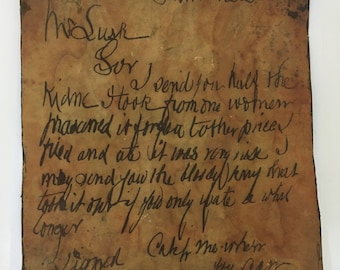 Mr Lusk
Sor
I send you half the
Kidne I took from one women
prasarved it for you tother piece I
fried and ate it was very nise I
may send you the bloody knif that
took it out if you only wate a whil
longer
signed Catch me when
you can